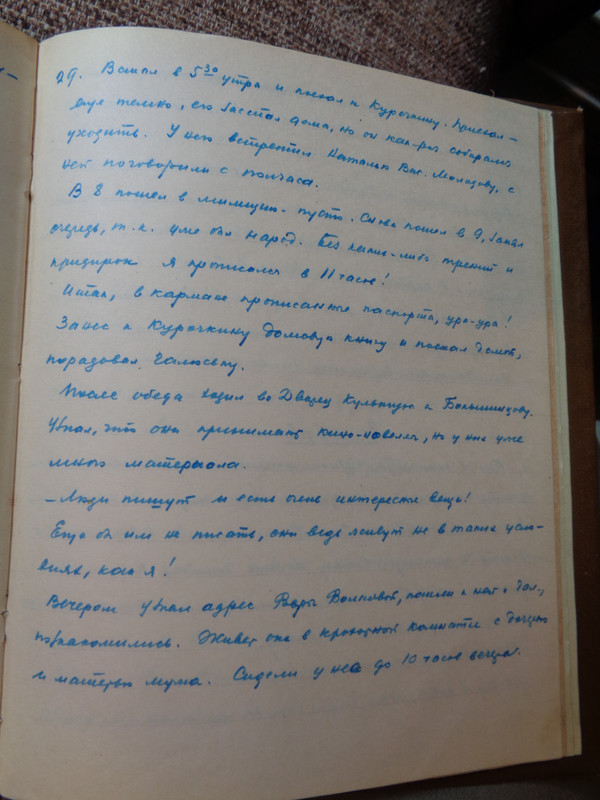 29. Встал в 5³⁰ утра и поехал к Курочкину. Приехал –
еще темно, его застал дома, но он как-раз собирался
уходить. У него встретил Наталью Вас. Молодову, с
ней поговорили с полчаса.
В 8 пошел в милицию – пусто. Снова пошел в 9, занял
очередь, т. к. уже был народ. Без каких-либо трений и
придирок я прописался в 11 часов!
Итак, в кармане прописанные паспорта, ура-ура!
Занес к Курочкину домовую книгу и поехал домой,
порадовал Галюську.
После обеда ходил во Дворец Культуры к Большинцову.
Узнал, что они принимают кино-новеллы, но у них уже
много материала.
– Люди пишут и есть очень интересные вещи!
Еще бы им не писать, они ведь живут не в таких усло-
виях, как я!
Вечером узнал адрес Волковой, пошли к ней с Гал.,
познакомились. Живет она в крохотной комнатке с дочерью
и матерью мужа. Сидели у нее до 10 часов вечера.